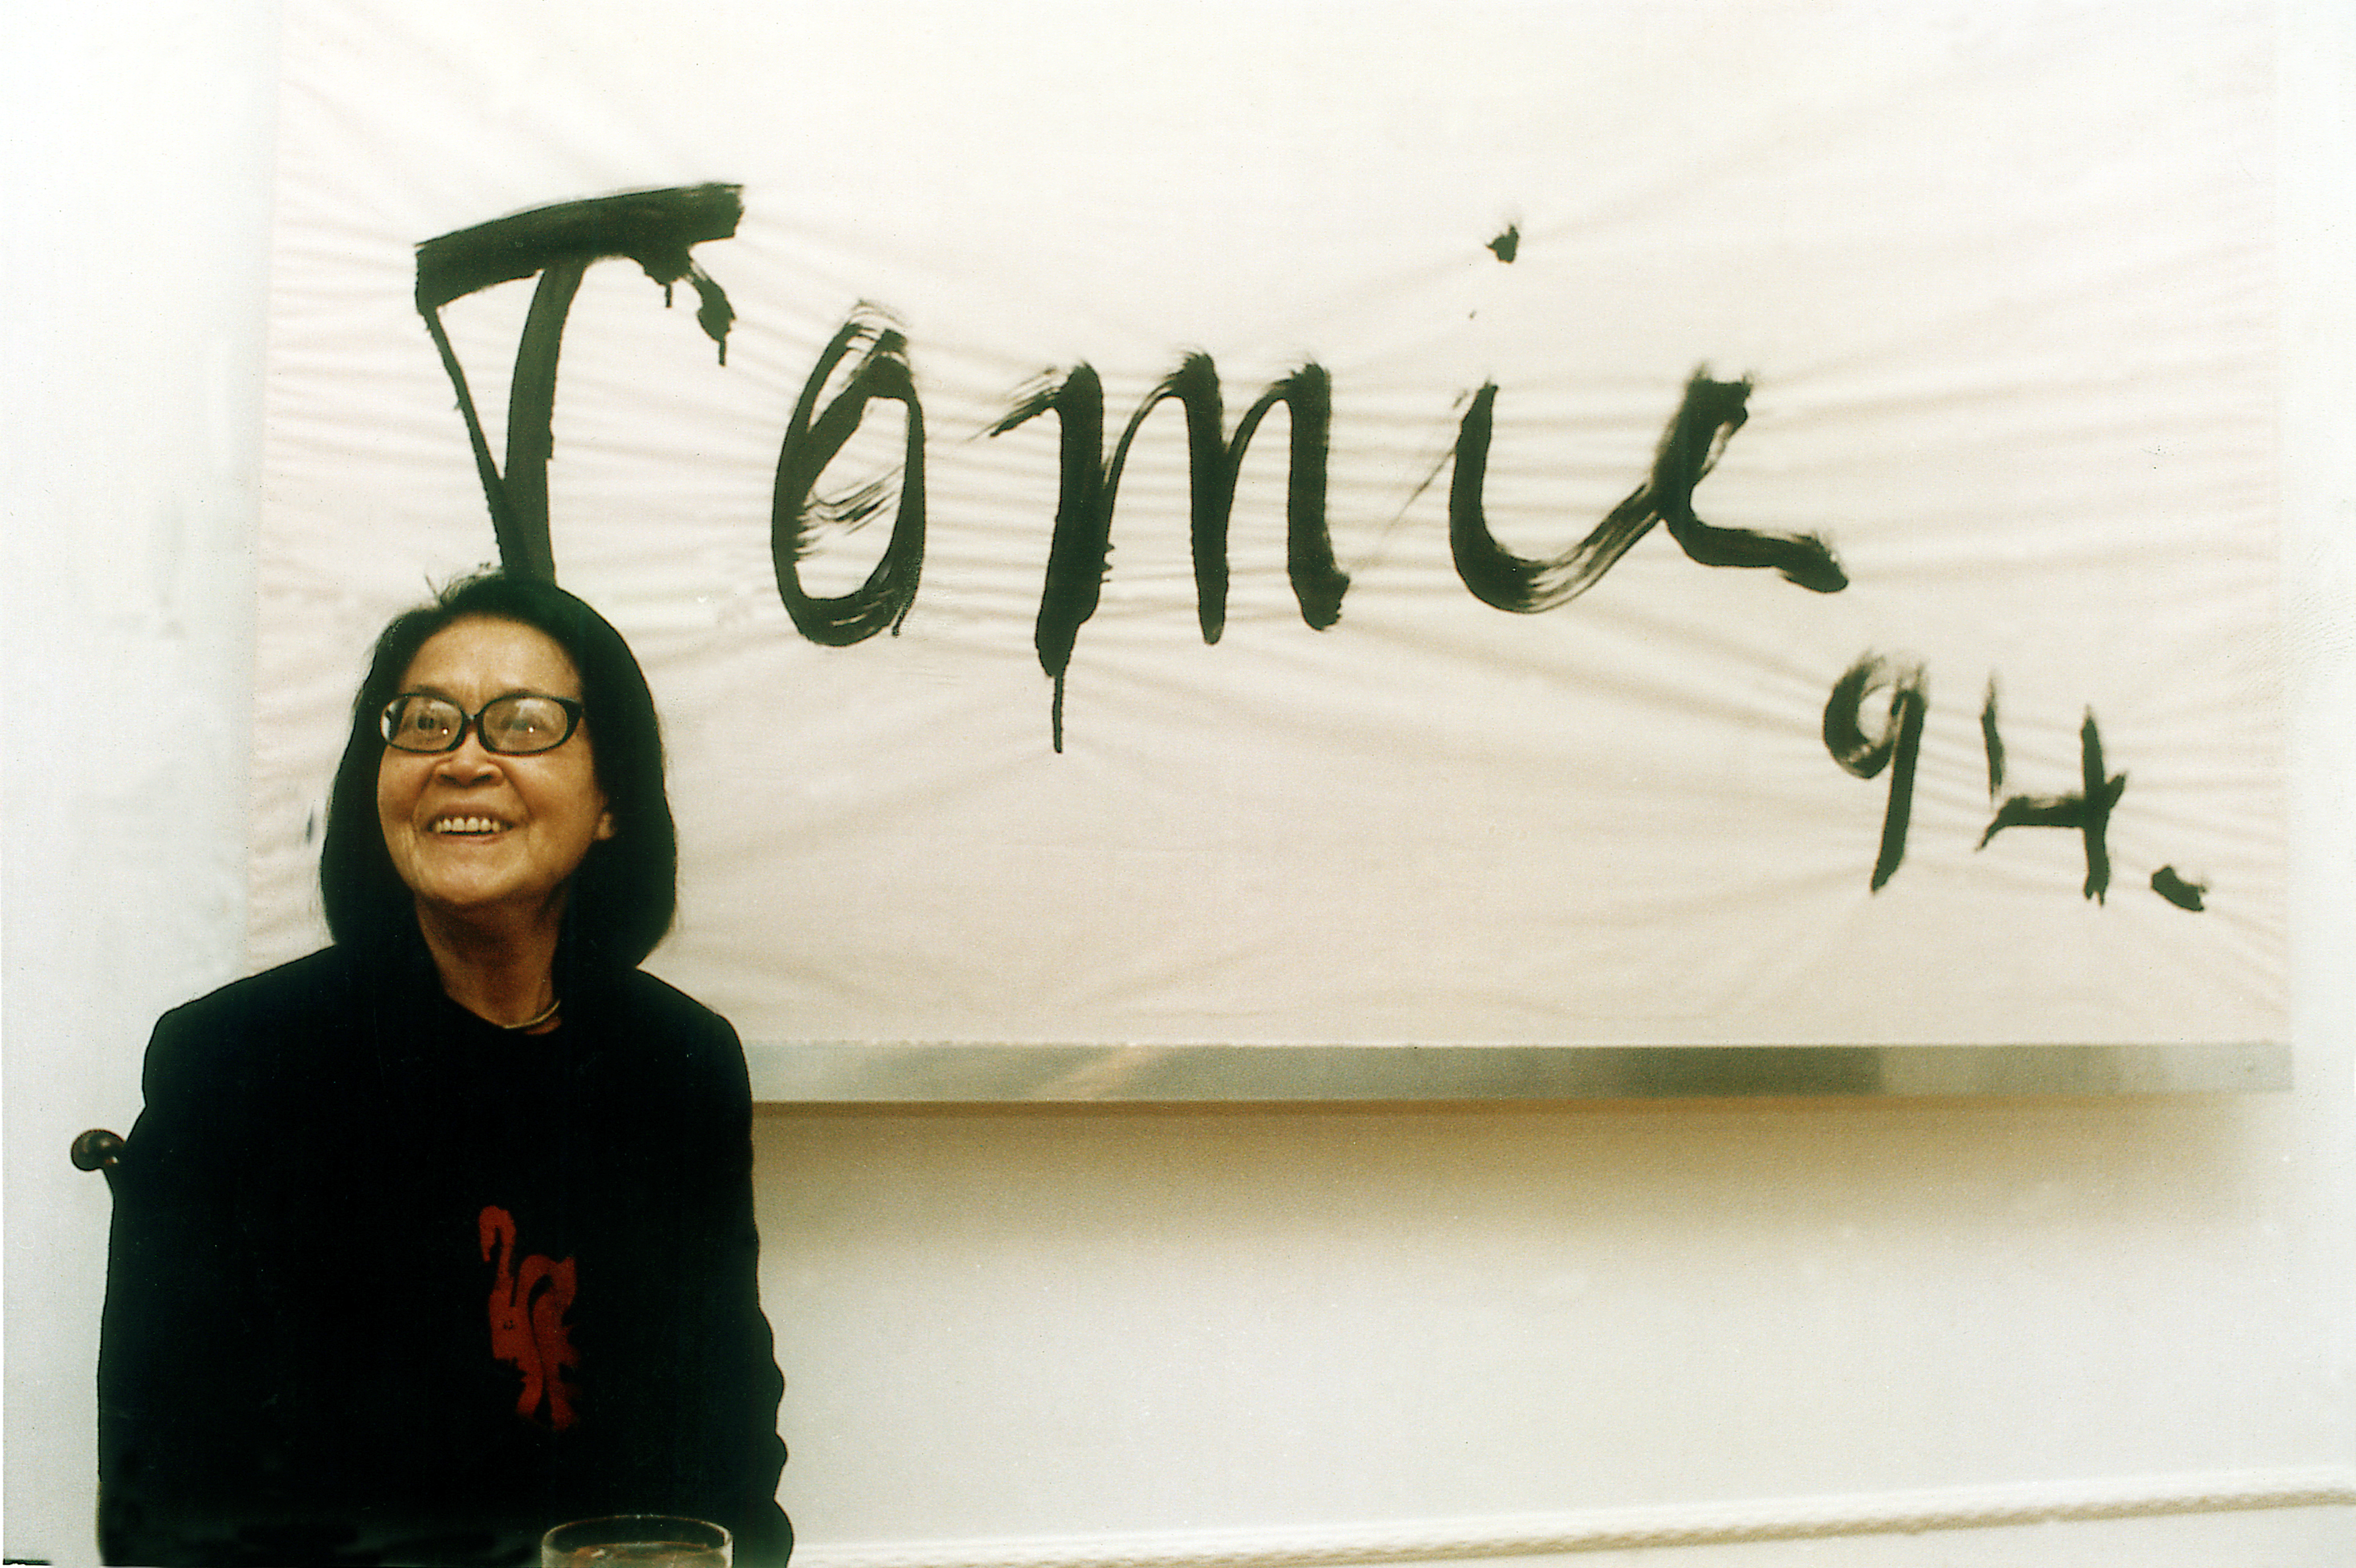 Tomie
94.